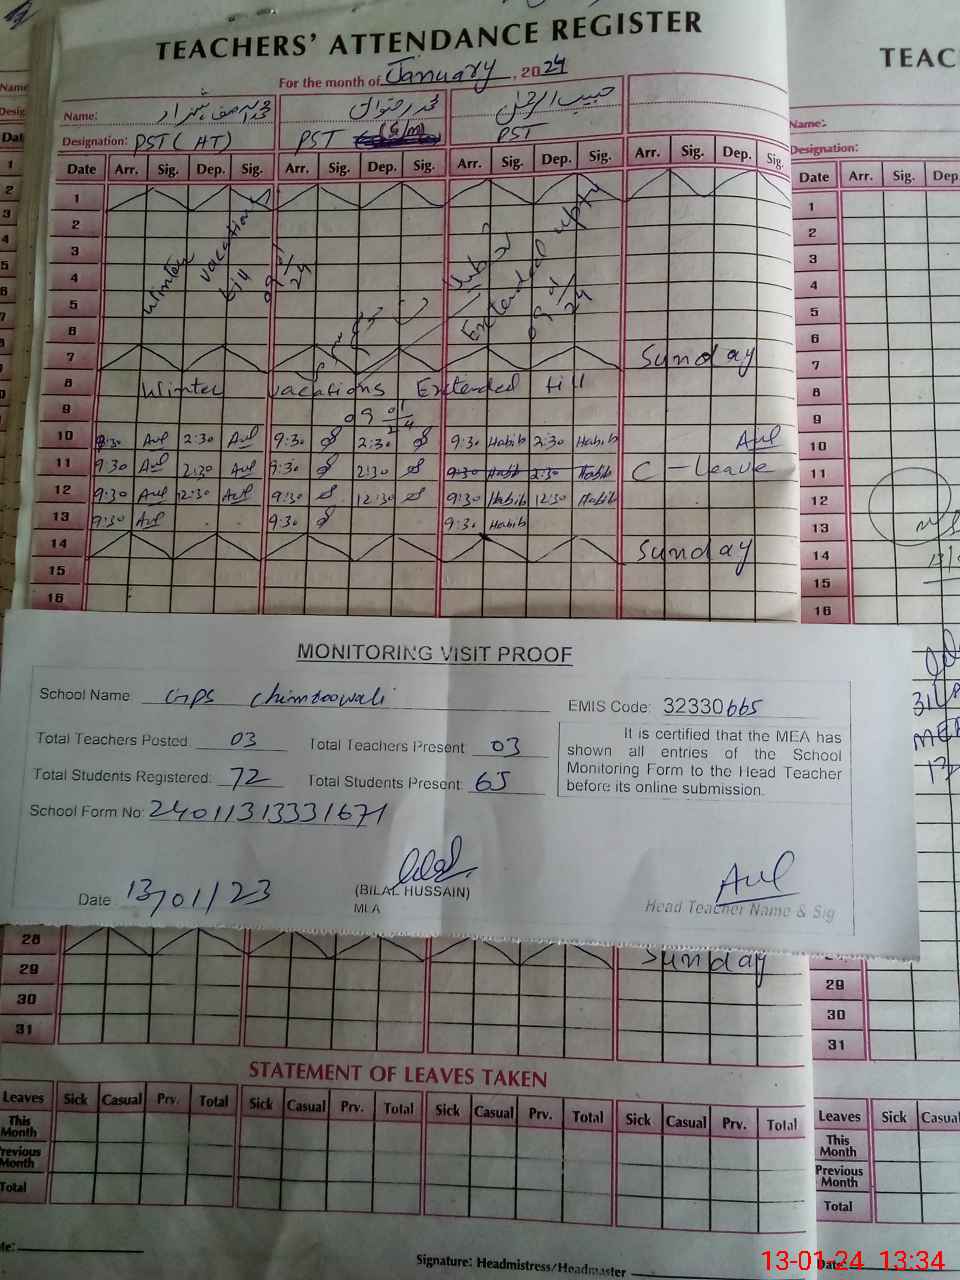 TEACHERS' ATTENDANCE REGISTER
For the month of January, 2024
Name: محمد آصف شہزاد محمد رضوان حبیب الرحمٰن
Designation: PST (HT) PST PST
Date Arr. Sig. Dep. Sig. Arr. Sig. Dep. Sig. Arr. Sig. Dep. Sig. Arr. Sig. Dep. Sig.
1
2
3
4
5
6
Winter vacations till 09 01/24
Extended upto 09 01/24
7 Sunday
8 Winter vacations Extended till
9 09 01/24
10 9:30 2:30 9:30 2:30 9:30 Habib 2:30 Habib
11 9:30 2:30 9:30 2:30 9:30 Habib 2:30 Habib C-Leave
12 9:30 12:30 9:30 12:30 9:30 Habib 12:30 Habib
13 9:30 9:30 9:30 Habib
14 Sunday
15
16
MONITORING VISIT PROOF
School Name: GPS Chimtoowali
EMIS Code: 32330665
Total Teachers Posted: 03 Total Teachers Present: 03
Total Students Registered: 72 Total Students Present: 65
School Form No: 24011313331671
It is certified that the MEA has
shown all entries of the School
Monitoring Form to the Head Teacher
before its online submission.
Date 13/01/23
(BILAL HUSSAIN)
MEA
Head Teacher Name & Sig
28 Sunday
29
30
31
STATEMENT OF LEAVES TAKEN
Leaves Sick Casual Prv. Total Sick Casual Prv. Total Sick Casual Prv. Total Sick Casual Prv. Total
This Month
Previous Month
Total
Signature: Headmistress/Headmaster
TEAC
Name:
Designation:
Date Arr. Sig. Dep.
1
2
3
4
5
6
7
8
9
10
11
12
13
14
15
16
29
30
31
Leaves Sick Casual
This Month
Previous Month
Total
Date:
13-01-24 13:34